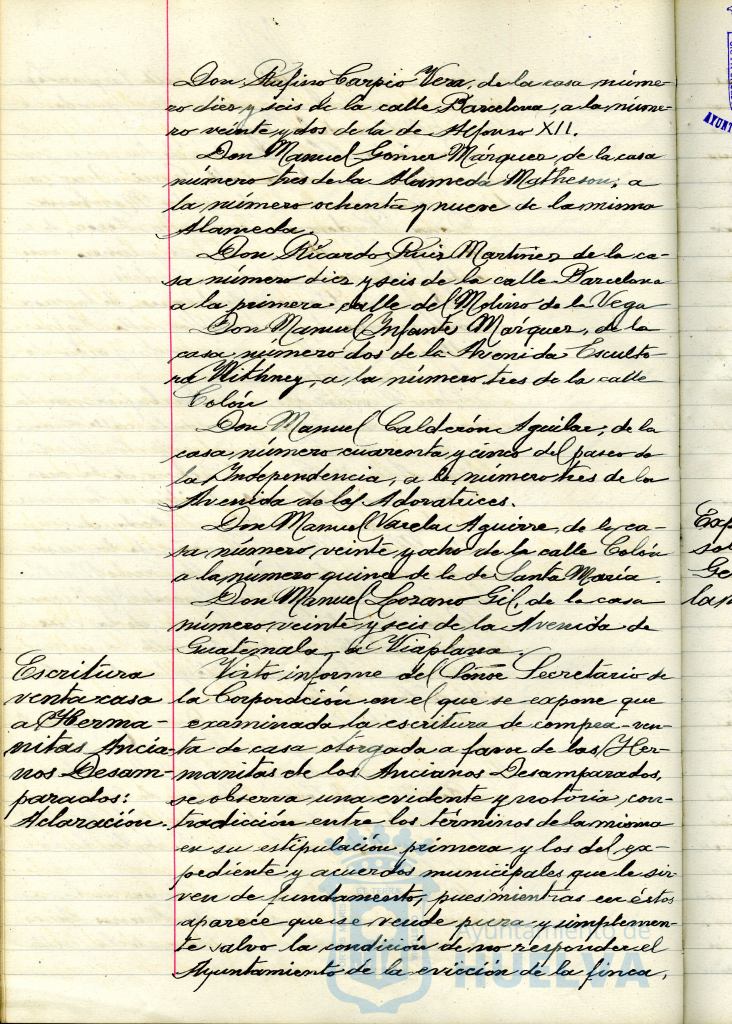 Don Rufino Carpio Vera, de la casa núme-
ro diez y seis de la calle Barcelona, a la núme-
ro veinte y dos de la de Alfonso XII.
Don Manuel Gómez Márquez, de la casa
número tres de la Alameda Matheson; a
la número ochenta y nueve de la misma
Alameda.
Don Ricardo Ruiz Martínez de la ca-
sa número diez y seis de la calle Barcelona
a la primera calle del Molino de la Vega
Don Manuel Infante Márquez, de la
casa número dos de la Avenida Esculto-
ra Withney, a la número tres de la calle
Colón
Don Manuel Calderón Aguilar, de la
casa número cuarenta y cinco del paseo de
la Independencia, a la número tres de la
Avenida de las Adoratrices.
Don Manuel Varela Aguirre, de la ca-
sa número veinte y ocho de la calle Colón
a la número quince de la de Santa María.
Don Manuel Lozano Gil, de la casa
número veinte y seis de la Avenida de
Guatemala a Viaplana.
Escritura
venta casa
a Herma-
nitas Ancia-
nos Desam-
parados:
Aclaración.
Visto informe del Señor Secretario de
la Corporación en el que se expone que
examinada la escritura de compra-ven-
ta de casa otorgada a favor de las Her-
manitas de los Ancianos Desamparados,
se observa una evidente y notoria con-
tradicción entre los términos de la misma
en su estipulación primera y los del ex-
pediente y acuerdos municipales que le sir-
ven de fundamento, pues mientras en éstos
aparece que se vende pura y simplemen-
te salvo la condición de no responder el
Ayuntamiento de la evicción de la finca,
Ayuntamiento de
HUELVA